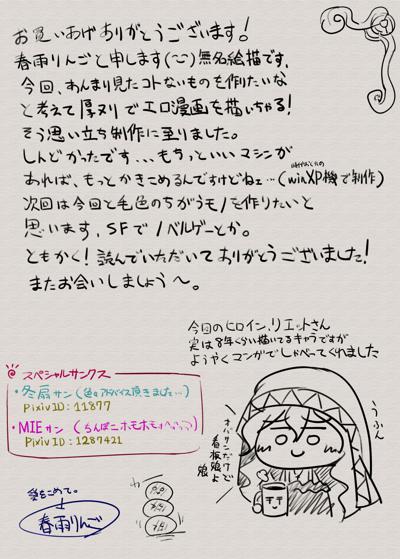 お買いあげありがとうございます!
春雨りんごと申します(~)無名絵描です。
今回、あんまり見たコトないものを作りたいな
と考えて厚ヌリでエロ漫画を描いちゃる!
そう思い立ち制作に至りました。
しんどかったです...もちっといいマシンが
あれば、もっとかきこめるんですけどねェ…(winXP機で制作)
次回は今回と毛色のちがうモノを作りたいと
思います。SFでノベルゲーとか。
ともかく!読んでいただいてありがとうございました!
またお会いしましょう〜。
今回のヒロイン、リエットさん
実は8年くらい描いてるキャラですが
ようやくマンガでしゃべってくれました
スペシャルサンクス
・冬扇サン(色々アドバイス頂きました…)
PixivID:11877
・MIEサン(
PixivID:1287421
うふん
オバサンだけど
看板娘よ
娘
愛をこめて。
春雨りんご
わー